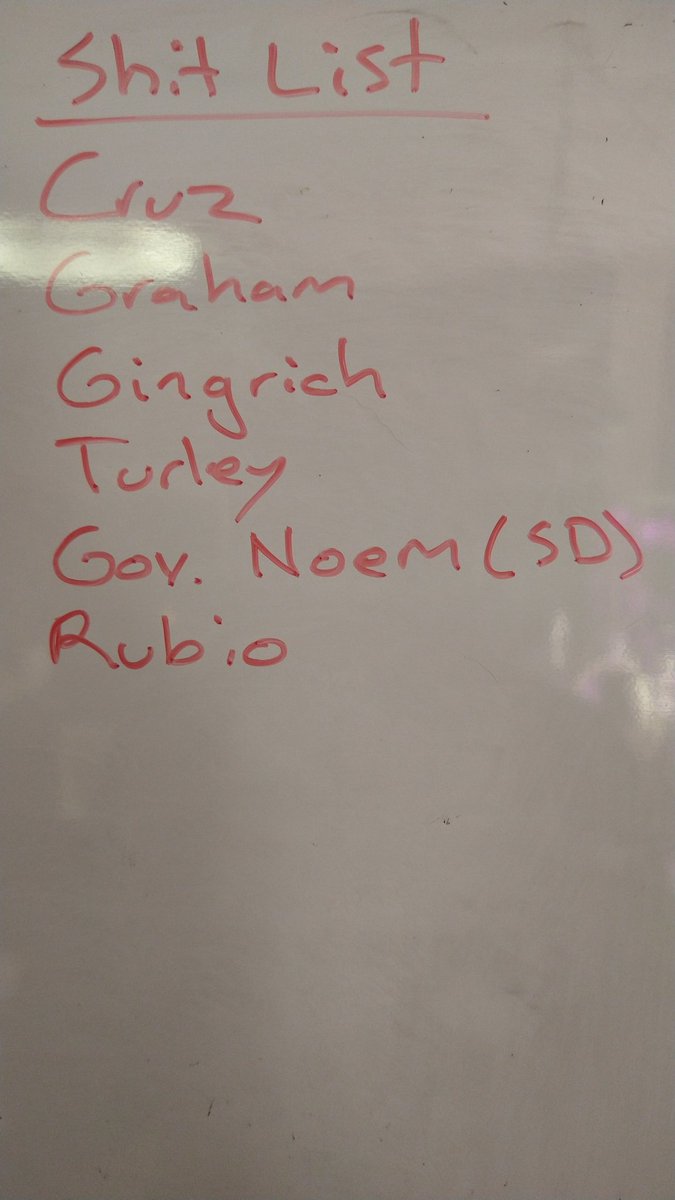 Shit List
Cruz
Graham
Gingrich
Turley
Gov. Noem (SD)
Rubio